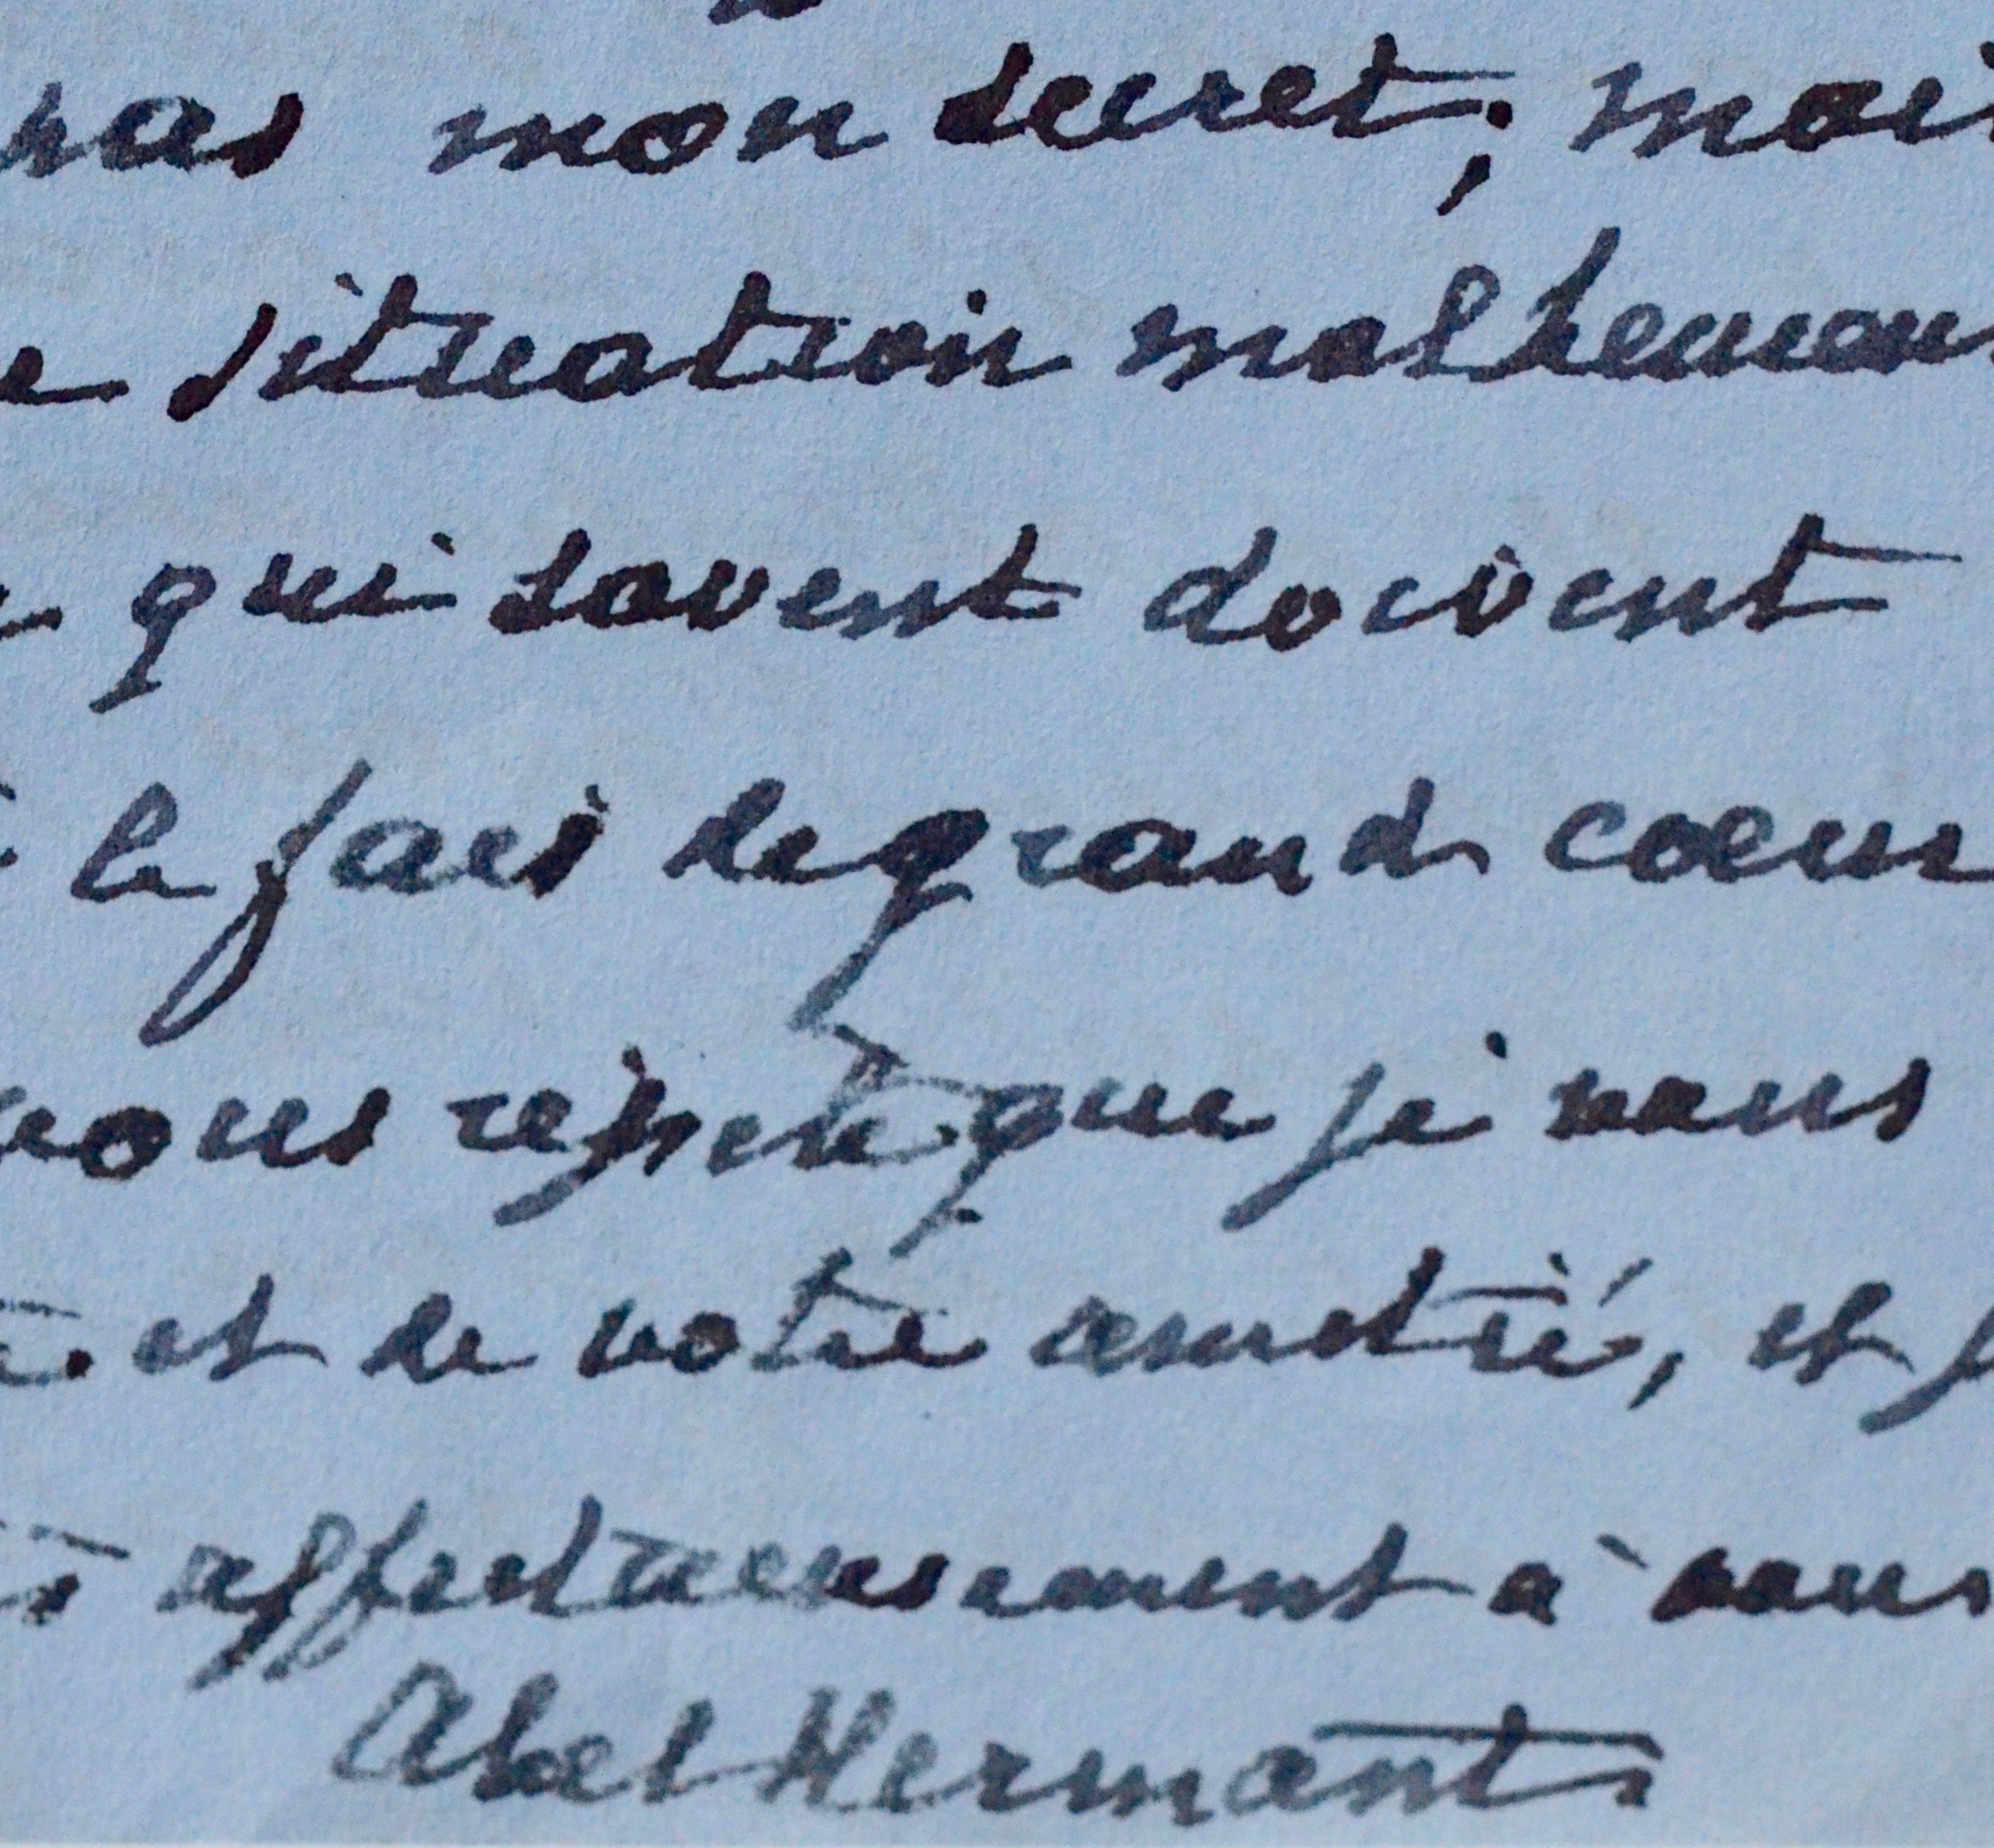 pas mon secret; mais
situation malheureus
qui savent doivent
le fais de grand cœur
vous répète que je vous
et de votre amitié, et
affectueusement à vous
Abel Hermant